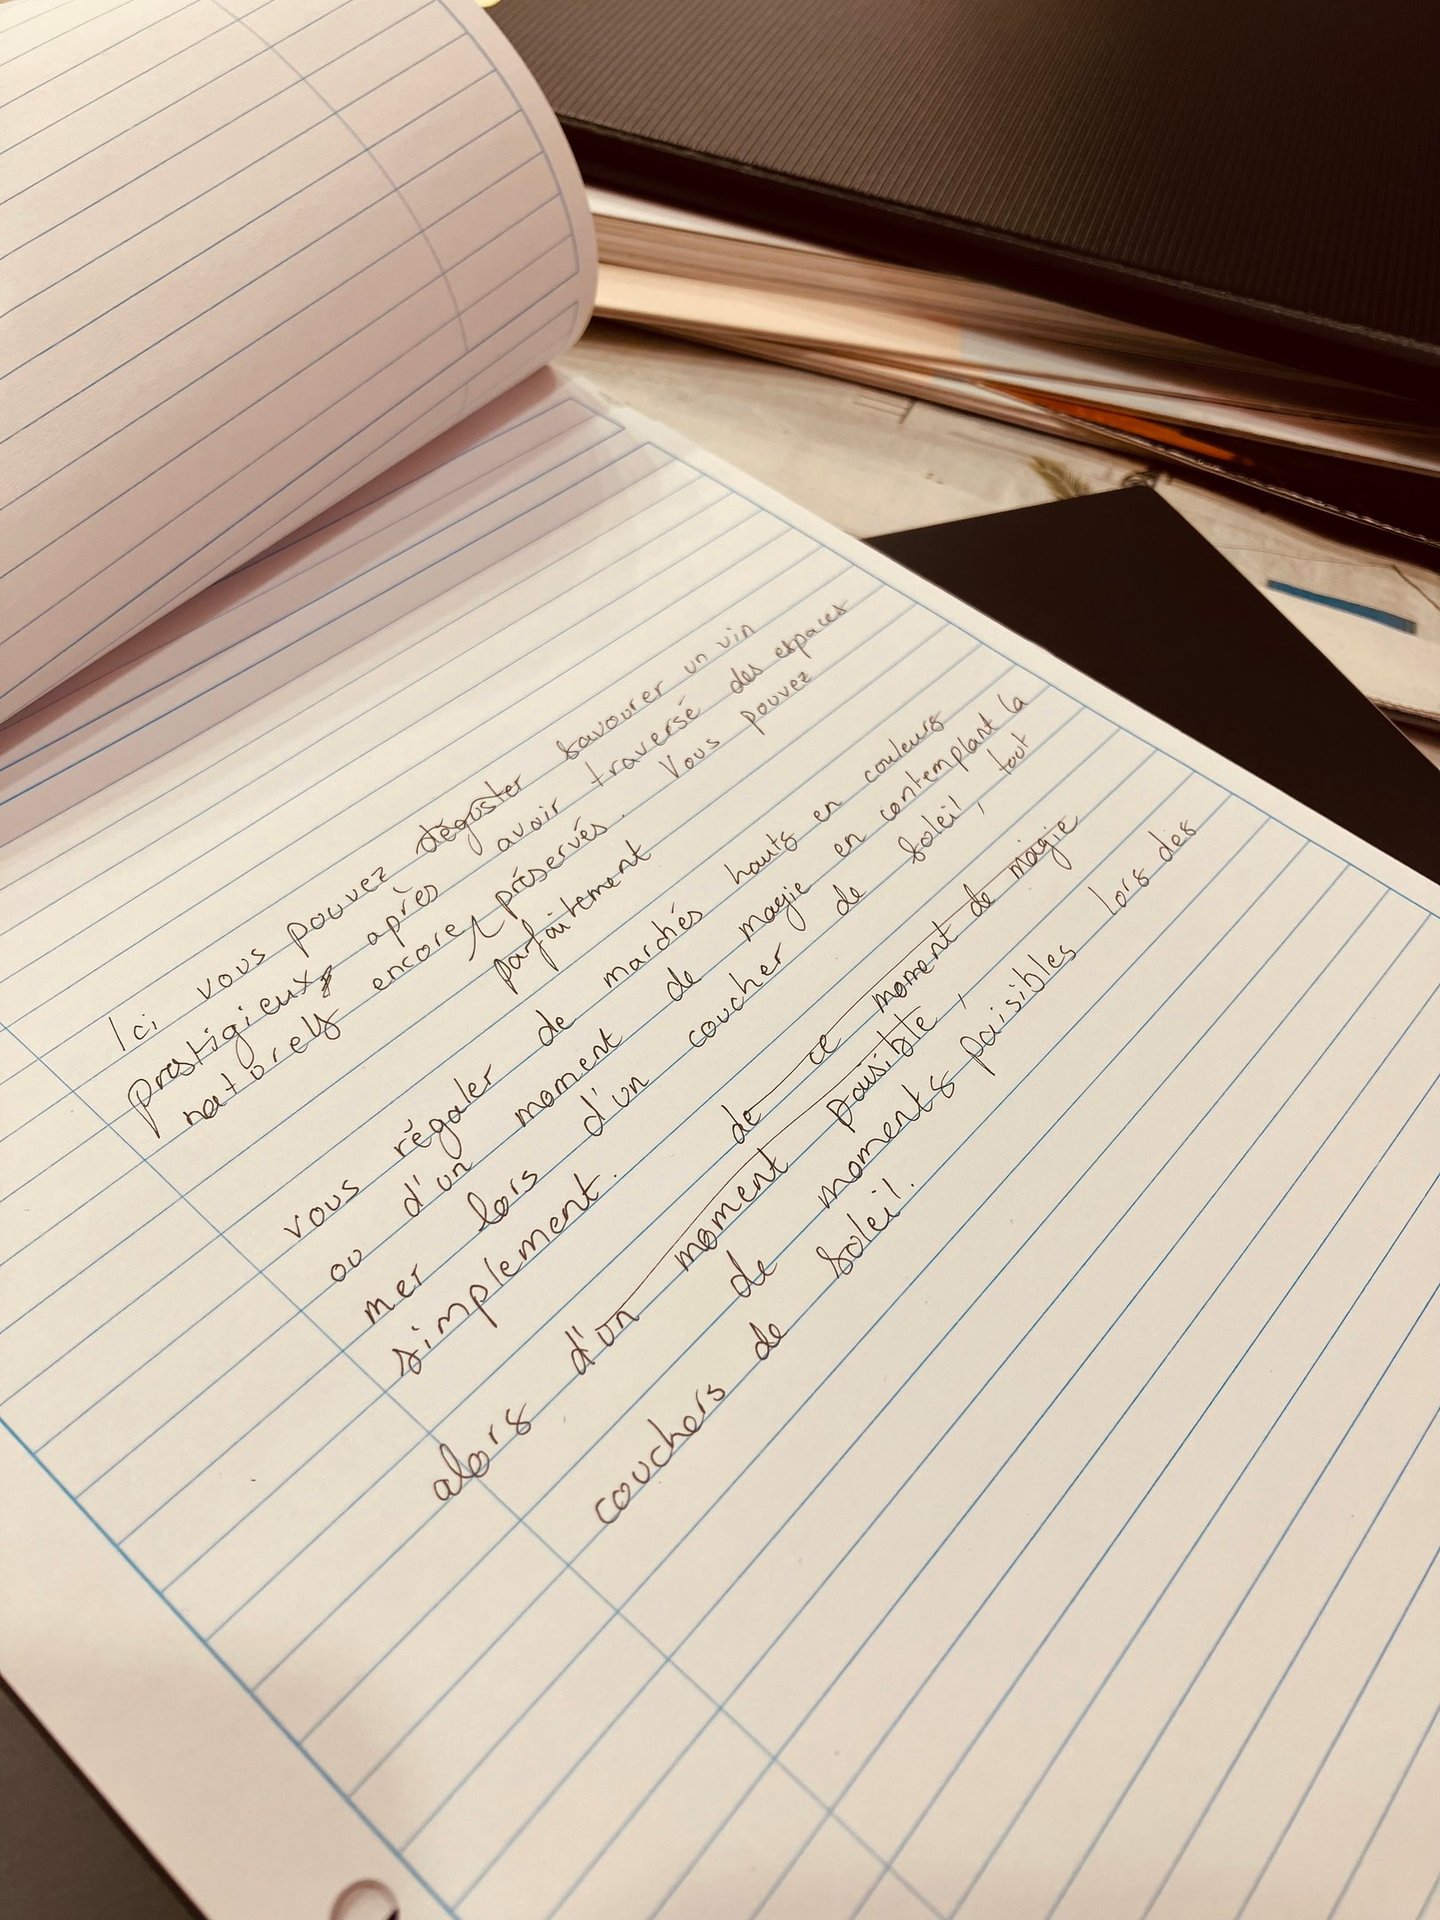 Ici vous pouvez déguster savourer un vin
prestigieux, après avoir traversé des espaces
naturels encore préservés. Vous pouvez
parfaitement
vous régaler de marchés hauts en couleurs
ou d'un moment de magie en contemplant la
mer lors d'un coucher de soleil, tout
simplement.
de ce moment de magie
alors d'un moment paisible,
de moments paisibles lors des
couchers de soleil.